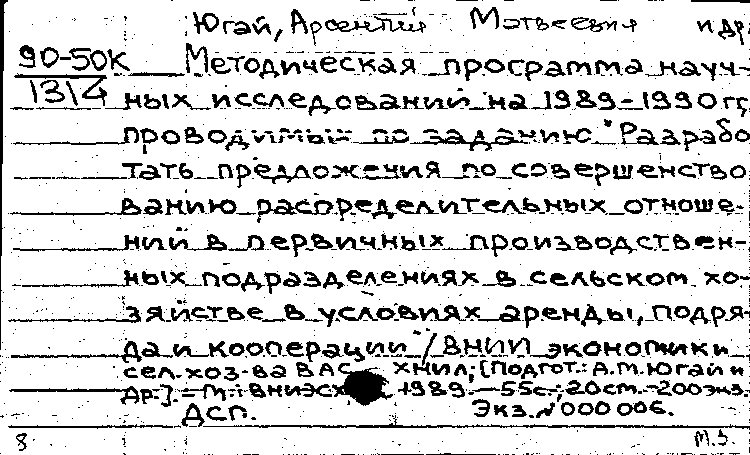 Югай, Арсентий Матвеевич и др.
90-50К Методическая программа науч-
1314 ных исследований на 1989-1990 гг.,
проводимых по заданию "Разрабо
тать предложения по совершенство
ванию распределительных отноше-
ний в первичных производствен-
ных подразделениях в сельском хо-
зяйстве в условиях аренды, подря-
да и кооперации" / ВНИИ экономики
сел. хоз-ва ВАСХНИЛ; [Подгот.: А.М. Югай и
др.]. - М.: ВНИЭСХ, 1989. - 55 с.; 20 см. - 200 экз.
ДСП. Экз. № 000006.
8